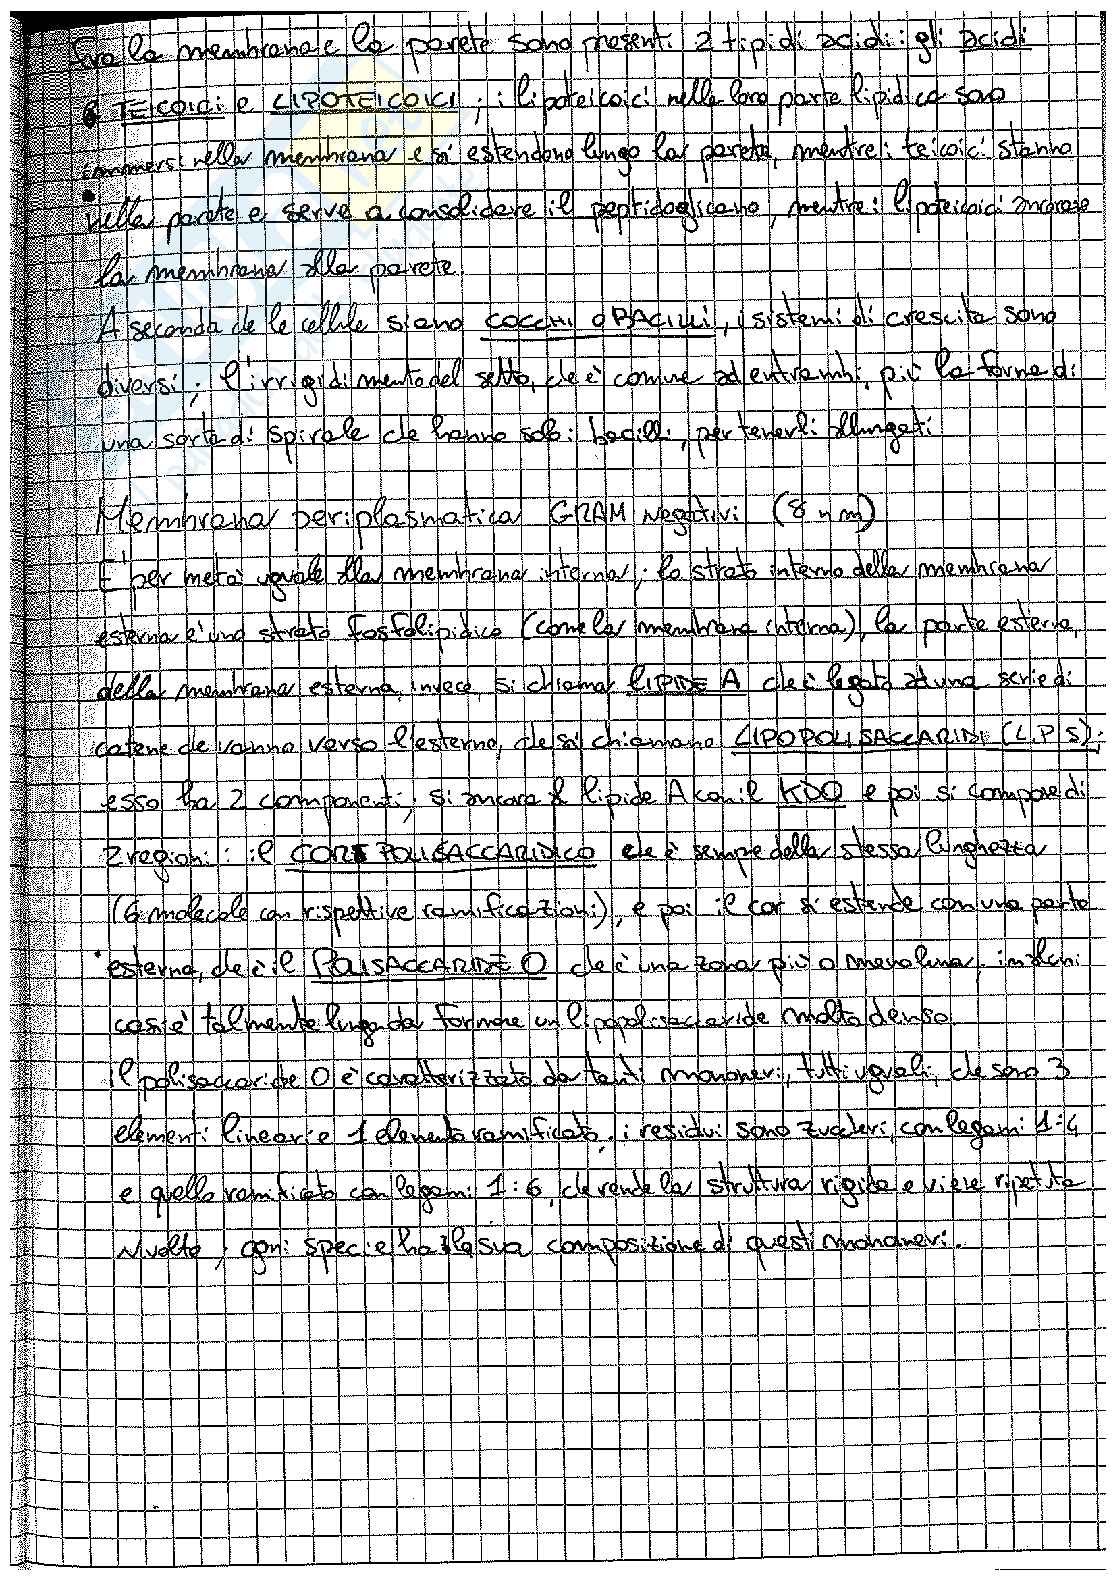 Fra la membrana e la parete sono presenti 2 tipi di acidi: gli acidi
TEICOICI e LIPOTEICOICI; i lipoteicoici nella loro parte lipidica sono
immersi nella membrana e si estendono lungo la parete, mentre i teicoici stanno
nella parete e serve a consolidare il peptidoglicano, mentre i lipoteicoici ancorano
la membrana alla parete.
A seconda che le cellule siano COCCHI O BACILLI, i sistemi di crescita sono
diversi; l'irrigidimento del setto, che è comune ad entrambi, più la forma di
una sorta di spirale che hanno solo i bacilli, per tenerli allungati
Membrana periplasmatica GRAM Negativi (8 nm)
E' per metà uguale alla membrana interna; lo strato interno della membrana
esterna è uno strato fosfolipidico (come la membrana interna), la parte esterna,
della membrana esterna, invece, si chiama LIPIDE A che è legato ad una serie di
catene che vanno verso l'esterno, che si chiamano LIPOPOLISACCARIDI (L.P.S);
esso ha 2 componenti; si ancora al lipide A con il KDO e poi si compone di
2 regioni: il CORE POLISACCARIDICO che è sempre della stessa lunghezza
(6 molecole con rispettive ramificazioni), e poi il cor si estende con una parte
esterna, che è il POLISACCARIDE O che è una zona più o meno lunga, in alcuni
casi è talmente lunga da formare un lipopolisaccaride molto denso.
il polisaccaride O è caratterizzato da tanti monomeri, tutti uguali, che sono 3
elementi lineari e 1 elemento ramificato; i residui sono zuccheri, con legami 1:4
e quello ramificato con legami 1:6, che rende la struttura rigida e viene ripetuta
N volte; ogni specie ha la sua composizione di questi monomeri.